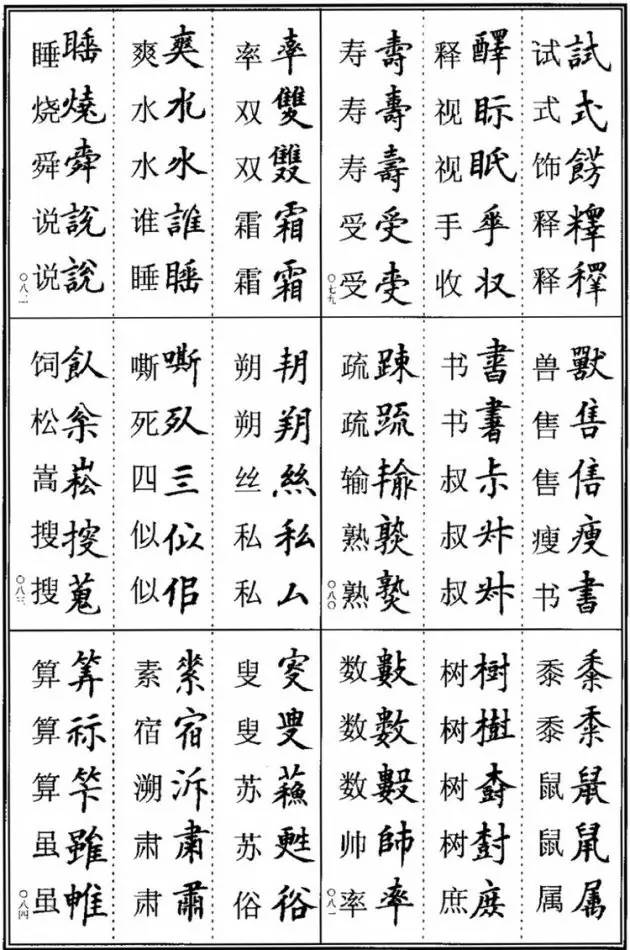 试試
式式
饰餝
释釋
释
释醳
视眎
视眡
手
收収
寿壽
寿壽
寿壽
受受
受
〇七九
兽獸
售售
售
瘦瘦
书書
书書
书書
叔
叔
叔
疏踈
疏䟽
输输
熟
熟
〇八〇
黍黍
黍
鼠鼠
鼠
属属
树樹
树樹
树
树尌
庶庶
数數
数數
数
帅帥
率率
〇八一
率率
双雙
双雙
霜霜
霜霜
爽爽
水水
水水
谁誰
睡睡
睡睡
烧燒
舜舜
说說
说說
〇八二
朔
朔朔
丝絲
私私
私厶
嘶嘶
死
四亖
似似
似佀
饲飤
松枀
嵩崧
搜搜
搜蒐
〇八三
叟叜
叟叟
苏蘓
苏甦
俗俗
素
宿宿
溯泝
肃肅
肃肅
算筭
算祘
算
虽雖
虽
〇八四